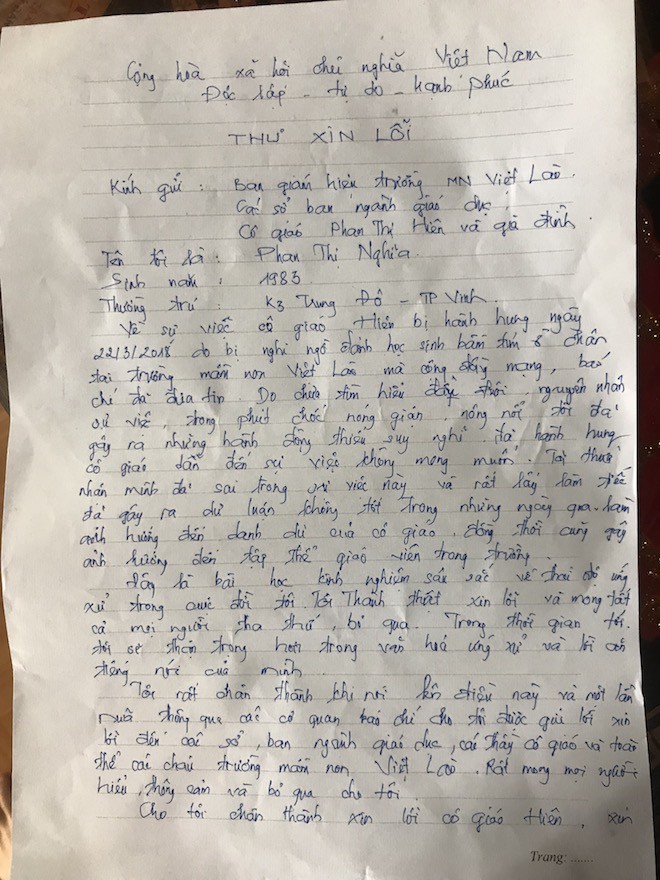 Cộng hoà xã hôi chủ nghĩa Việt Nam
Độc lập - tự do - hạnh phúc
THƯ XIN LỖI
Kính gửi : Ban giám hiệu trường MN Việt Lào.
Các sở ban ngành giáo dục
Cô giáo Phan Thị Hiền và gia đình.
Tên tôi là : Phan Thị Nghĩa.
Sinh năm : 1983
Thường trú : K3 Trung Đô - TP Vinh.
Về sự việc cô giáo Hiền bị hành hung ngày
22/3/2018 do bị nghi ngờ đánh học sinh bầm tím ở chân
tại trường mầm non Việt Lào mà cộng đồng mạng, báo
chí đã đưa tin. Do chưa tìm hiểu thấu nguyên nhân
sự việc, trong phút chốc nóng giận, nóng nổi tôi đã
gây ra những hành động thiếu suy nghĩ đã hành hung
cô giáo dẫn đến sự việc không mong muốn. Tôi
nhận mình đã sai trong sự việc này và rất lấy làm tiếc
đã gây ra dư luân không tốt trong những ngày qua làm
ảnh hưởng đến danh dự của cô giáo, đồng thời cũng gây
ảnh hưởng đến tập thể giáo viên trong trường.
Đây là bài học kinh nghiệm sâu sắc về thái độ ứng
xử trong cuộc đời tôi. Tôi Thành thật xin lỗi và mong tất
cả mọi người tha thứ, bỏ qua. Trong thời gian tới.
tôi sẽ thận trọng hơn trong văn hoá ứng xử và lời ăn
tiếng nói của mình.
Tôi rất chân thành khi nói lên điều này và một lần
nữa thông qua các cơ quan báo chí cho tôi được gửi lời xin
lỗi đến các sở, ban ngành giáo dục, các thầy cô giáo và toàn
thể các cháu trường mầm non Việt Lào. Rất mong mọi người
hiểu, thông cảm và bỏ qua cho tôi
Cho tôi chân thành xin lỗi cô giáo Hiền, xin
Trang: .......